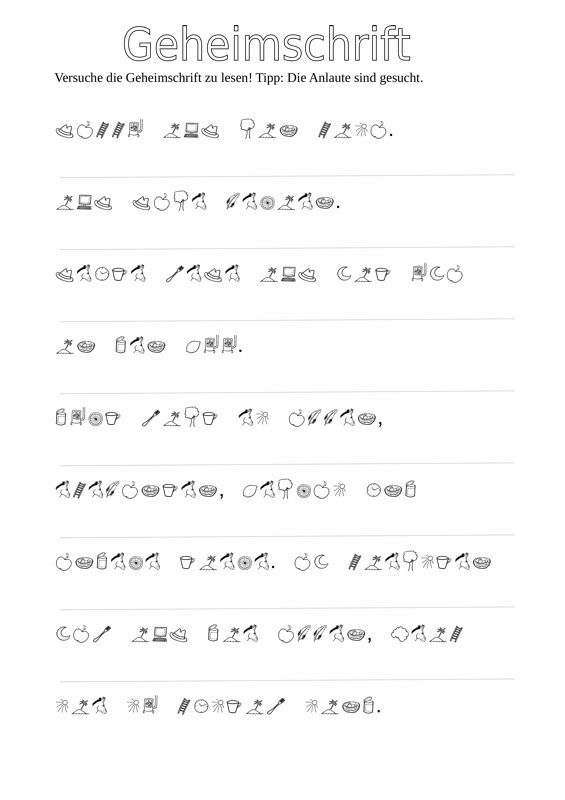 Geheimschrift
Versuche die Geheimschrift zu lesen! Tipp: Die Anlaute sind gesucht.